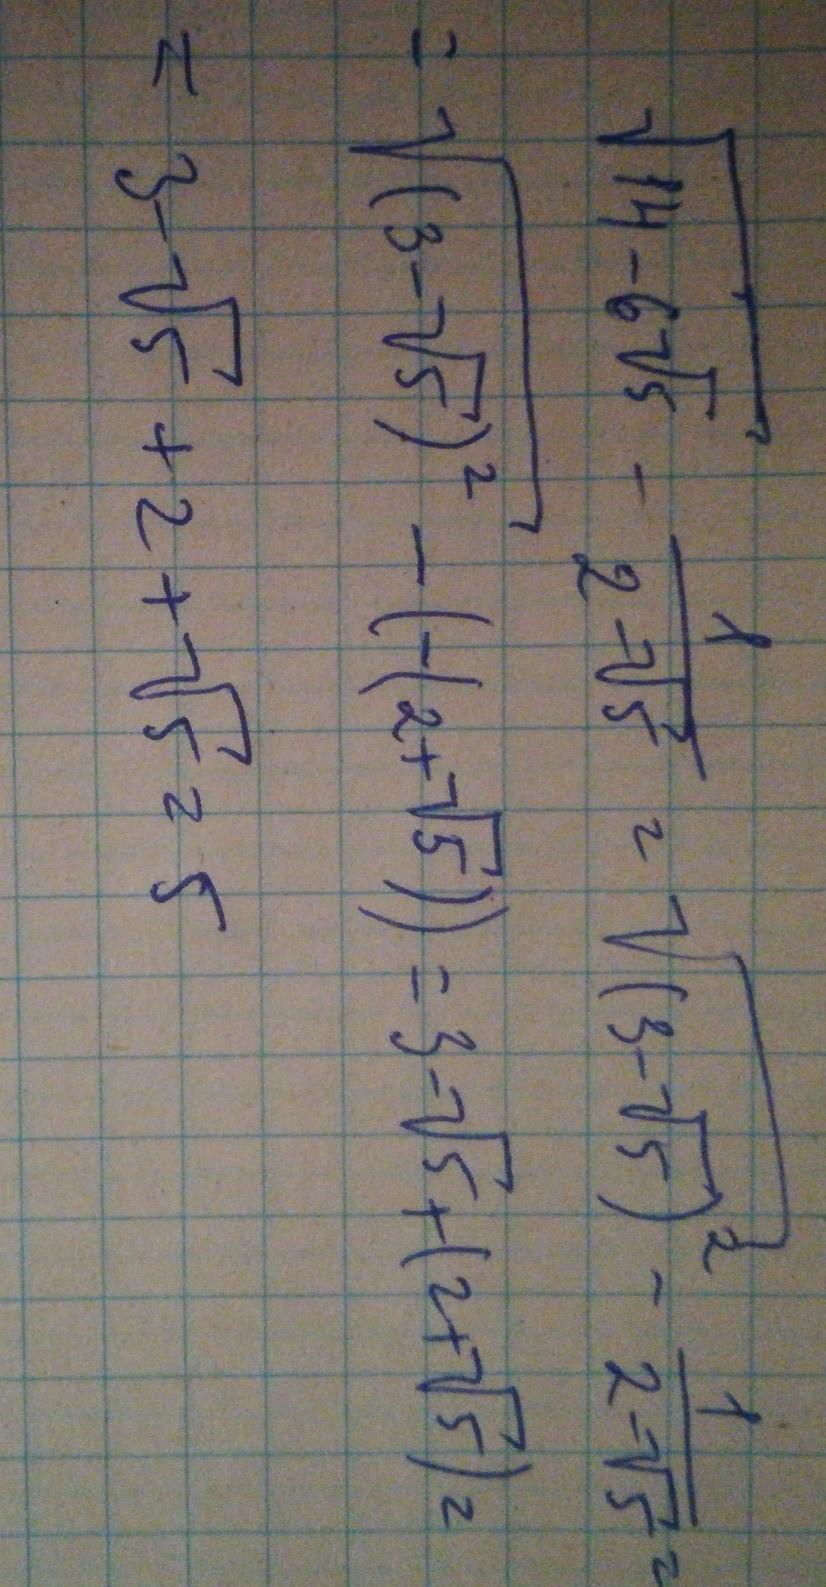 √(14-6√5) - 1/(2-√5) = √((3-√5)²) - 1/(2-√5) =
= √((3-√5)²) - (-(2+√5)) = 3-√5+(2+√5) =
= 3-√5+2+√5 = 5